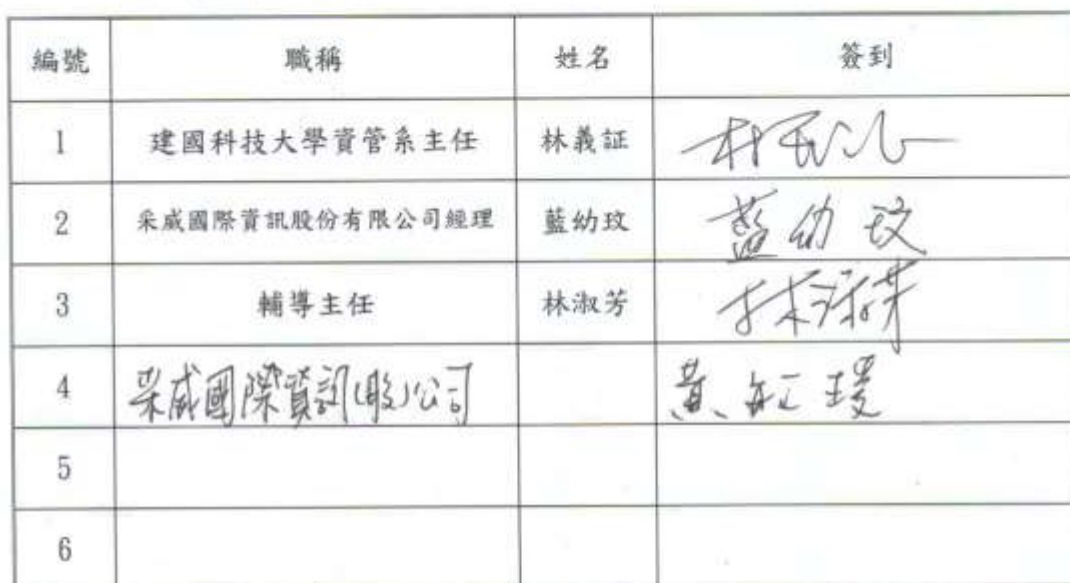 編號 職稱 姓名 簽到
1 建國科技大學資管系主任 林義証
2 采威國際資訊股份有限公司經理 藍幼玫 藍幼玫
3 輔導主任 林淑芳 林淑芳
4 采威國際資訊(股)公司 黃
5
6